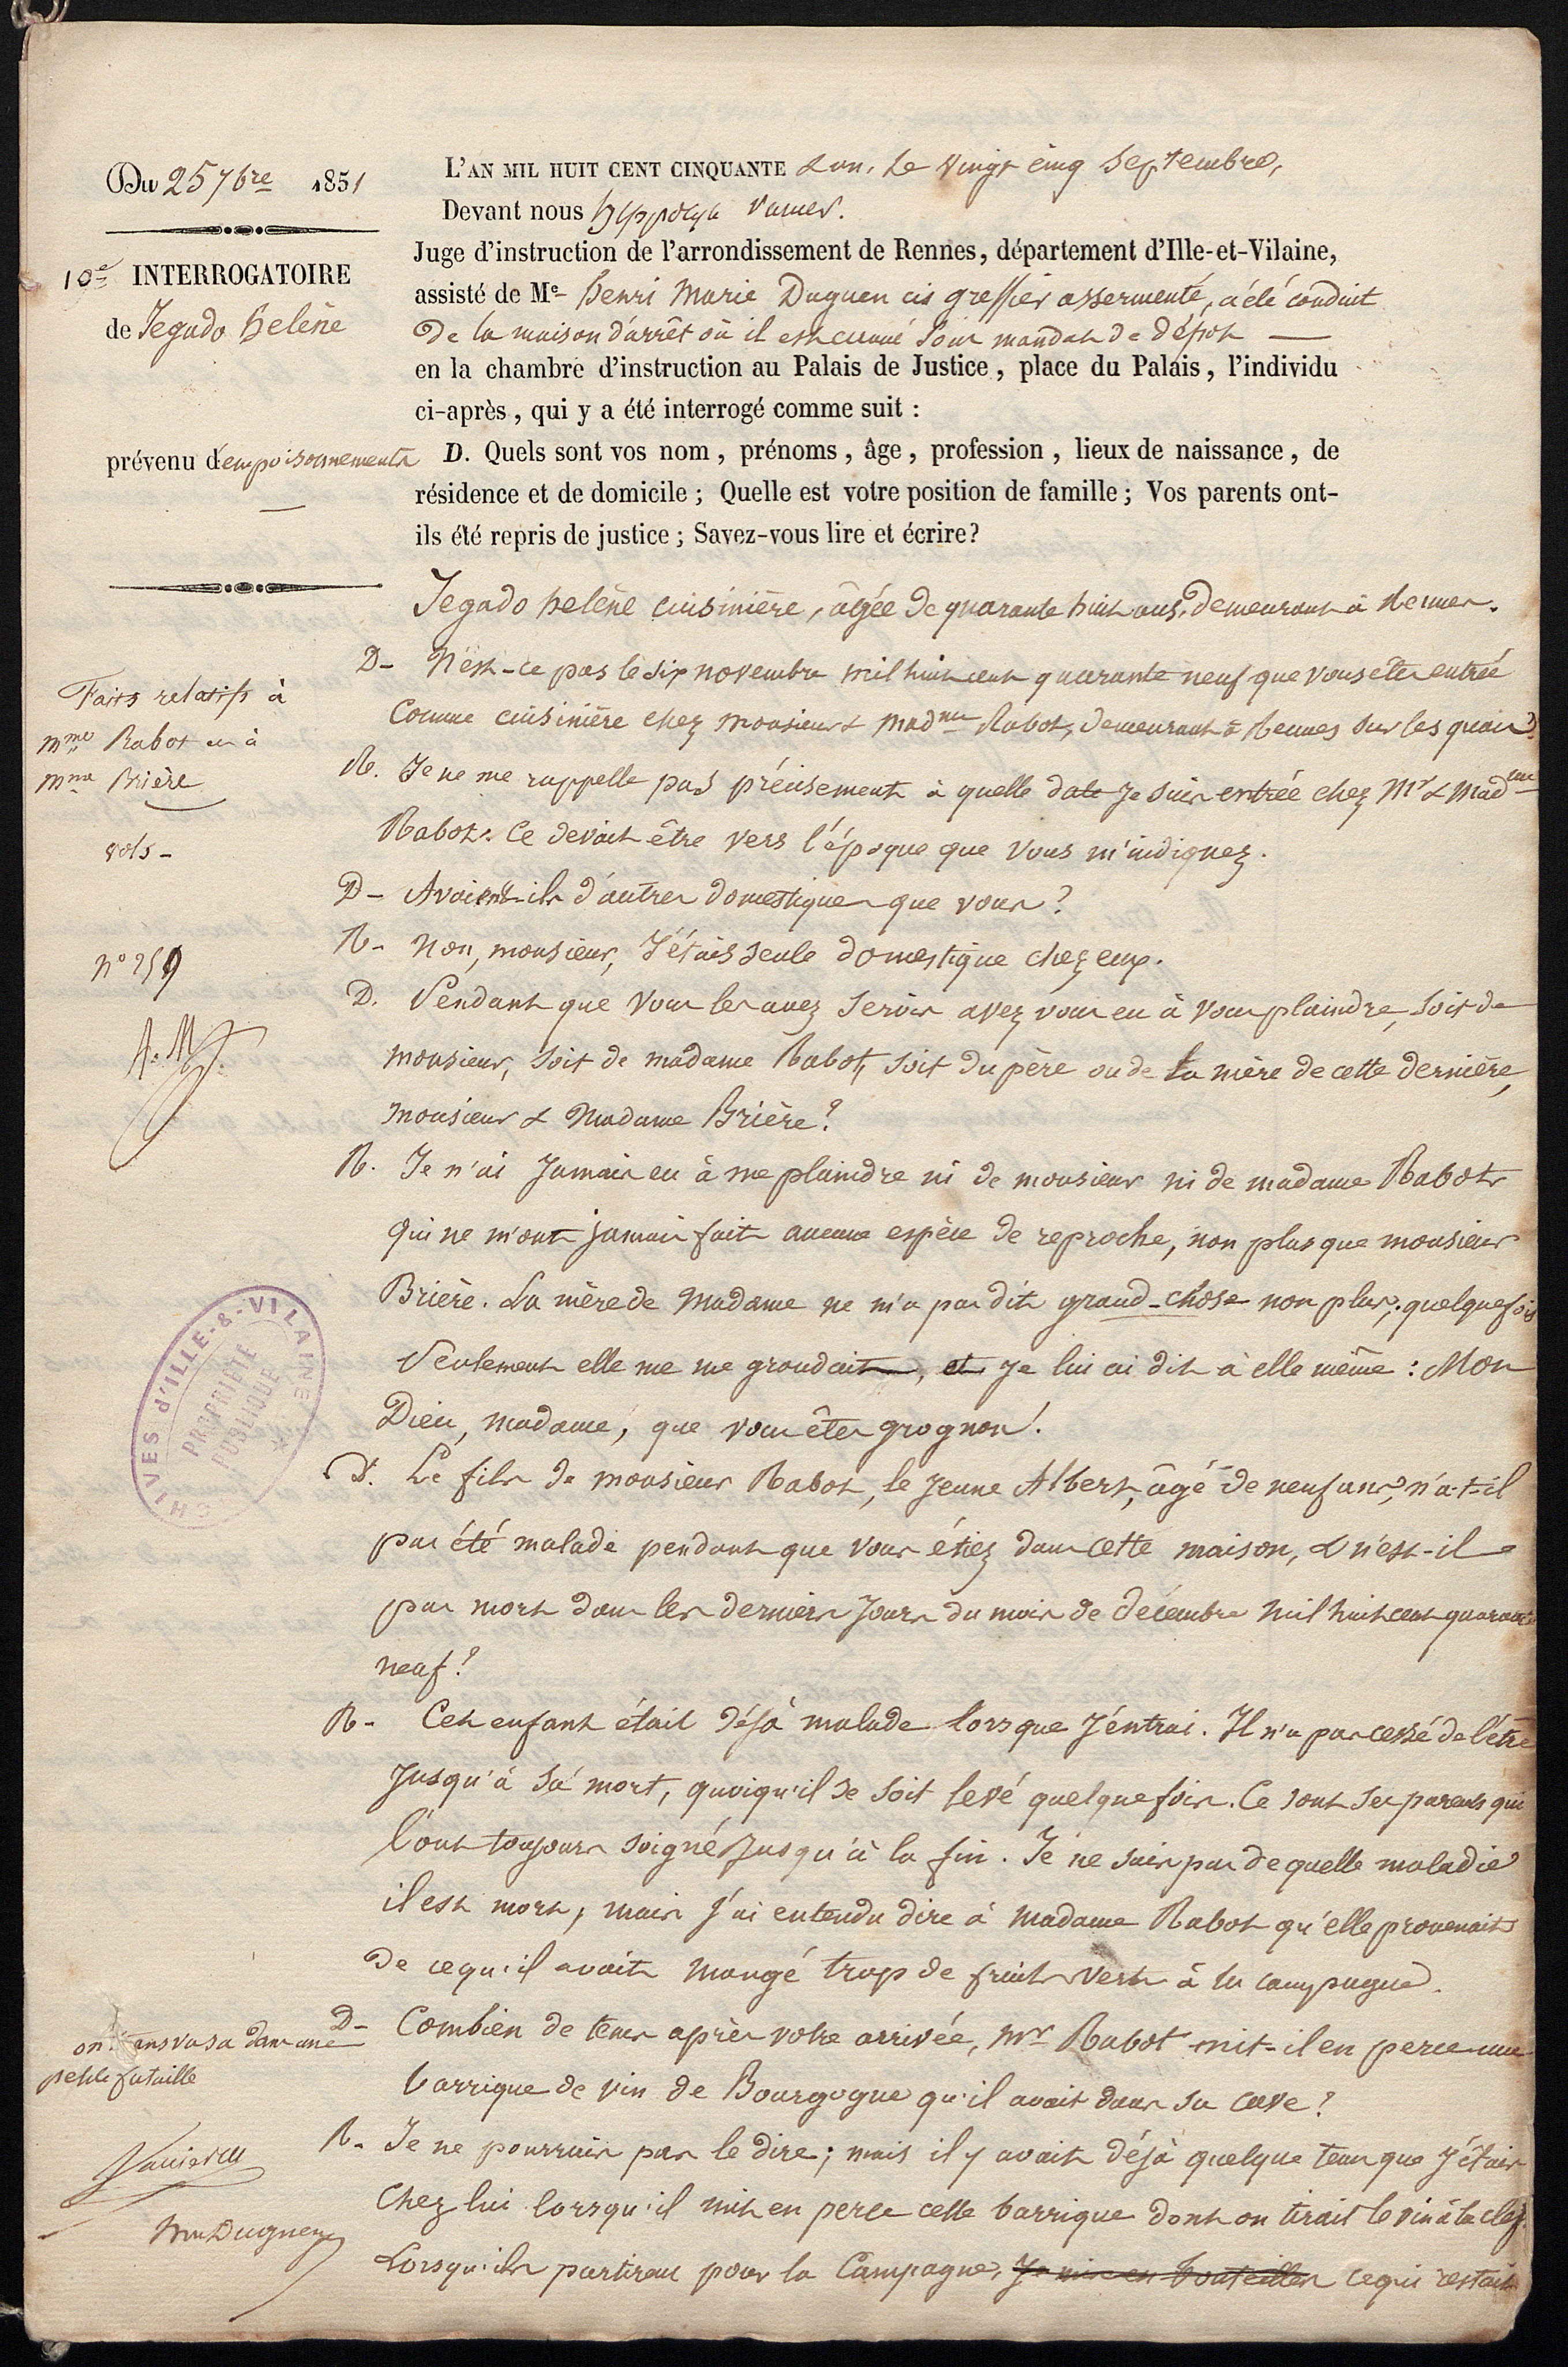 Du 25 7bre 1851
10e INTERROGATOIRE
de Jegado helène
prévenu d'empoisonnements
Faits relatifs à
Mme Rabot et à
Mme Brière
vols -
n° 259
CHIVES d'ILLE-&-VILAINE
PROPRIÉTÉ
PUBLIQUE
L'AN MIL HUIT CENT CINQUANTE & un, Le vingt cinq Septembre,
Devant nous hippolyte Vannier.
Juge d'instruction de l'arrondissement de Rennes, département d'Ille-et-Vilaine,
assisté de Me henri Marie Duguen cis greffier assermenté, a été conduit
De la maison d'arrêt où il est écroué sous mandat de dépôt —
en la chambre d'instruction au Palais de Justice, place du Palais, l'individu
ci-après, qui y a été interrogé comme suit :
D. Quels sont vos nom, prénoms, âge, profession, lieux de naissance, de
résidence et de domicile ; Quelle est votre position de famille ; Vos parents ont-
ils été repris de justice ; Savez-vous lire et écrire?
Jegado helène cuisinière, âgée de quarante huit ans, demeurant à Rennes.
D- N'est-ce pas le six novembre mil huit cent quarante neuf que vous êtes entrée
comme cuisinière chez monsieur & madme Rabot, demeurant à Rennes sur les quais ?
R. Je ne me rappelle pas précisement à quelle date je suis entrée chez Mr & Madme
Rabot. Ce devait être vers l'époque que vous m'indiquez.
D- Avaient-ils d'autres domestiques que vous ?
R- Non, monsieur, J'étais seule domestique chez eux.
D. Pendant que vous les avez servis avez vous eu à vous plaindre, soit de
monsieur, soit de madame Rabot, soit du père ou de la mère de cette dernière,
monsieur & Madame Brière ?
R. Je n'ai jamais eu à me plaindre ni de monsieur ni de madame Rabot
qui ne m'ont jamais fait aucune espèce de reproche, non plus que monsieur
Brière. La mère de Madame ne m'a pas dit grand-chose non plus ; quelquefois
Seulement elle me me grondait, et je lui ai dit à elle même : Mon
Dieu, madame, que vous êtes grognon !
D. Le fils de monsieur Rabot, le jeune Albert, âgé de neuf ans, n'a-t-il
pas été malade pendant que vous étiez dans cette maison, & n'est-il
pas mort dans les derniers jours du mois de décembre mil huit cent quarante
neuf ?
R- Cet enfant était déjà malade lorsque j'entrai. Il n'a pas cessé de l'être
jusqu'à sa mort, quoiqu'il se soit levé quelquefois. Ce sont ses parents qui
l'ont toujours soigné jusqu'à la fin. Je ne sais pas de quelle maladie
il est mort, mais j'ai entendu dire à Madame Rabot qu'elle provenait
de ce qu'il avait mangé trop de fruits verts à la campagne.
D- Combien de tems après votre arrivée, Mr Rabot mit-il en perce une
barrique de vin de Bourgogne qu'il avait dans sa cave ?
R- Je ne pourrais pas le dire ; mais il y avait déjà quelque tems que j'étais
chez lui lorsqu'il mit en perce cette barrique dont on tirait le vin à la clef.
Lorsqu'ils partirent pour la Campagne, je mis en bouteilles ce qui restait
on transvasa dans une
petite futaille
Vannier
hm Duguen